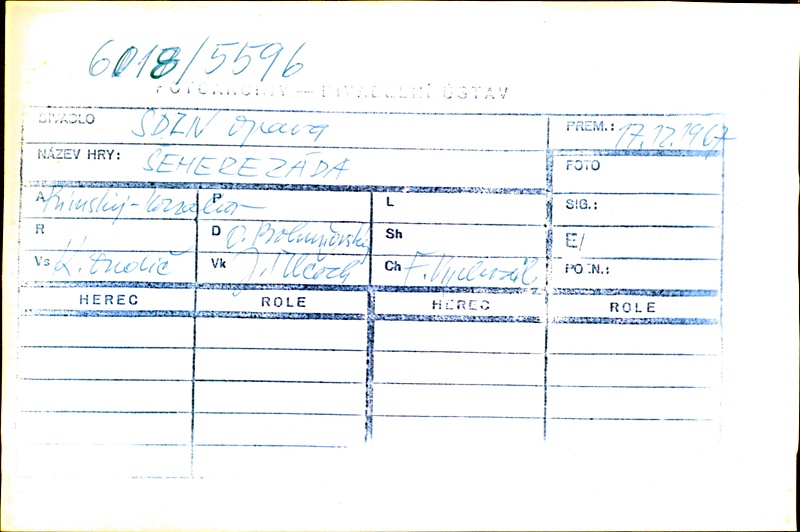 6018/5596
FOTOARCHIV — DIVADELNÍ ÚSTAV
DIVADLO SDZN Opava PREM.: 17.12.1967
NÁZEV HRY: ŠEHEREZÁDA FOTO
A Rimskij-Korsakov P L SIG.:
R D O. Bohuňovský Sh E/
Vs K. Andič Vk J. Vlčoch Ch F. Vychodil POZN.:
HEREC ROLE HEREC ROLE